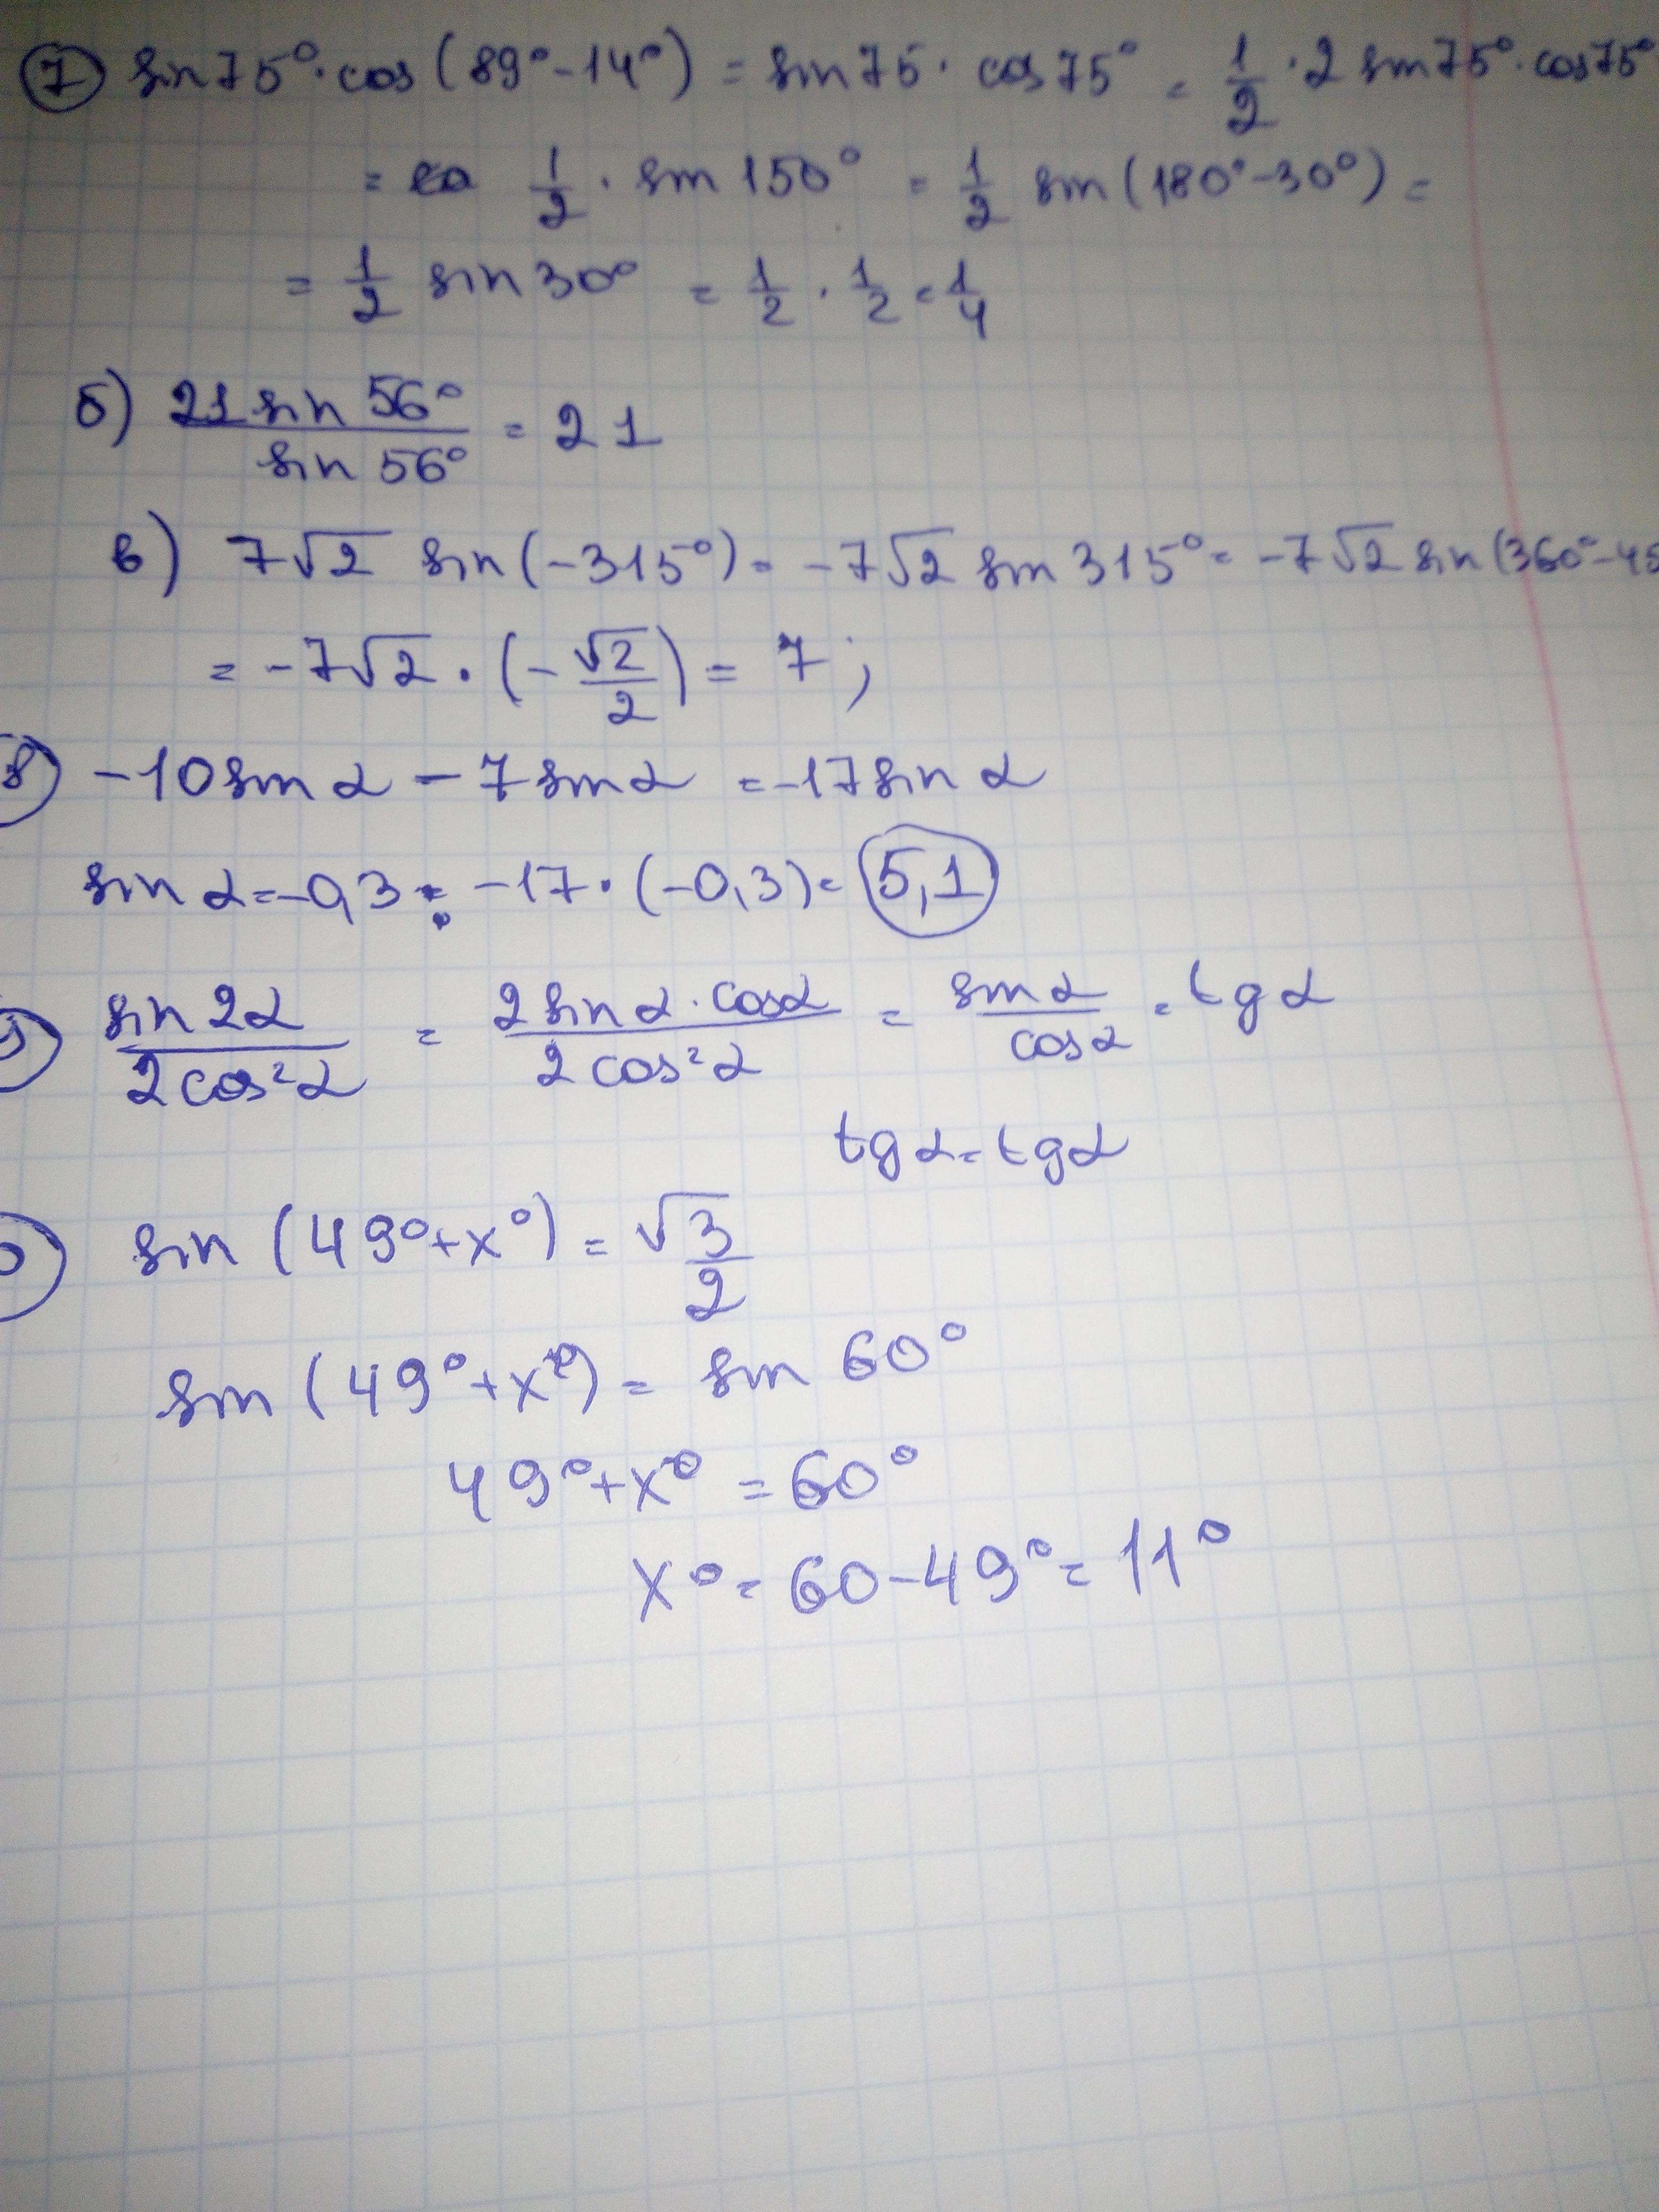 7 sin75°·cos(89°-14°) = sin75·cos75° = 1/2·2sin75°·cos75°
= 1/2·sin150° = 1/2 sin(180°-30°) =
= 1/2 sin30° = 1/2·1/2 = 1/4
б) 21sin56°/sin56° = 21
в) 7√2 sin(-315°) = -7√2 sin315° = -7√2 sin(360°-45
= -7√2·(-√2/2) = 7;
8) -10sinα - 7sinα = -17sinα
sinα = -0,3: -17·(-0,3) = 5,1
9) sin2α/2cos²α = 2sinα·cosα/2cos²α = sinα/cosα = tgα
tgα = tgα
0) sin(49°+x°) = √3/2
sin(49°+x°) = sin60°
49°+x° = 60°
x° = 60-49° = 11°